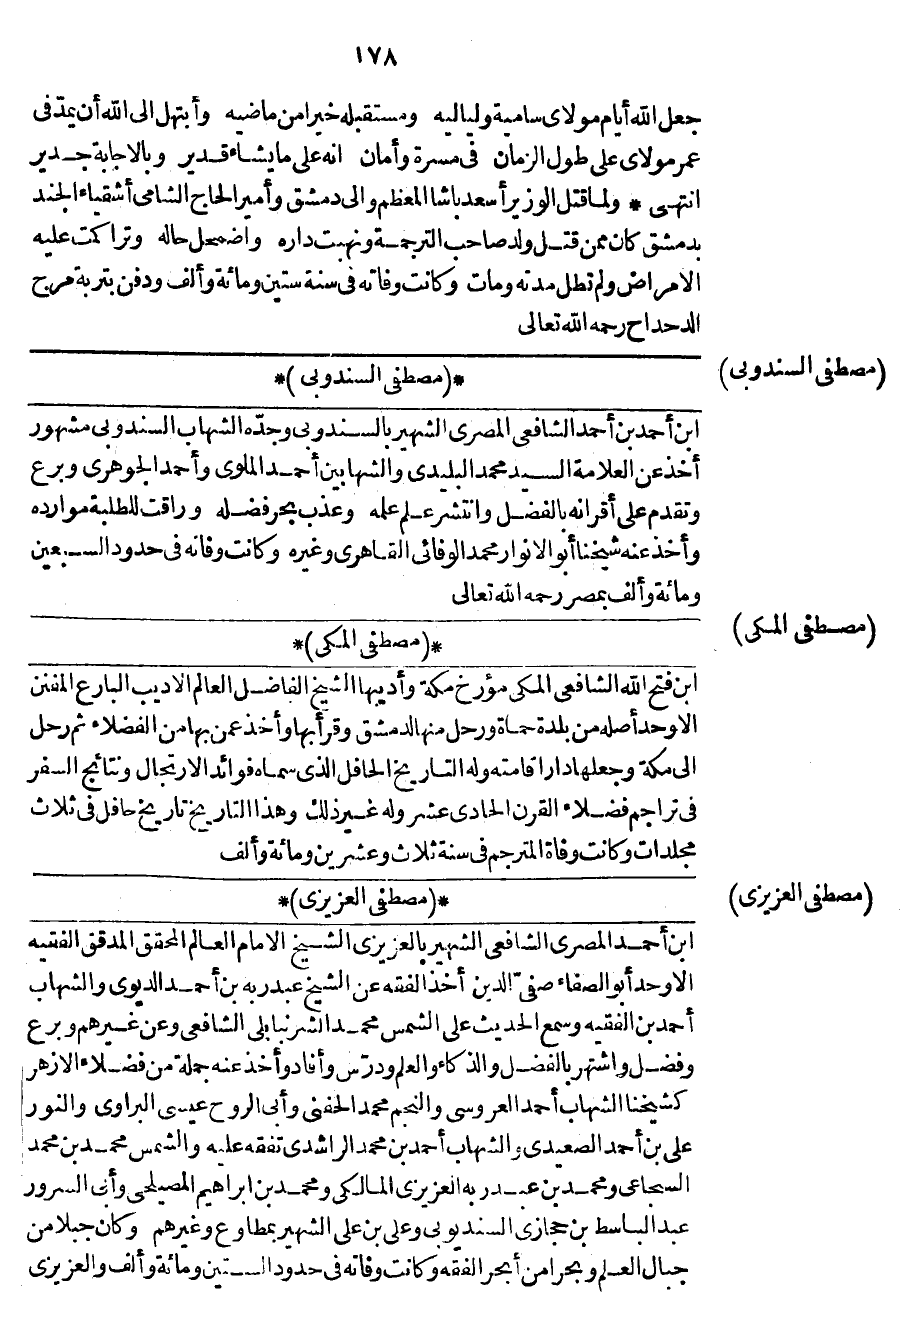 ١٧٨
جعل الله أيام مولاى سامية ولياليه ومستقبله خيرا من ماضيه وأبتهل الى الله أن يمدّ فى
عمر مولاى على طول الزمان فى مسرة وأمان انه على ما يشاء قدير وبالاجابة جدير
انتهى * ولما قتل الوزير أسعد باشا المعظم والى دمشق وأمير الحاج الشامى أشقياء الجند
بدمشق كان ممن قتل ولد صاحب الترجمة ونهبت داره واضمحل حاله وتراكمت عليه
الامراض ولم تطل مدته ومات وكانت وفاته فى سنة ستين ومائة وألف ودفن بتربة مرج
الدحداح رحمه الله تعالى
(مصطفى السندوبى)
*(مصطفى السندوبى)*
ابن أحمد بن أحمد الشافعى المصرى الشهير بالسندوبى وجدّه الشهاب السندوبى مشهور
أخذ عن العلامة السيد محمد البليدى والشهابين أحمد الملوى وأحمد الجوهرى وبرع
وتقدم على أقرانه بالفضل وانتشر علم علمه وعذب بحر فضله وراقت للطلبة موارده
وأخذ عنه شيخنا أبو الانوار محمد الوفائى القاهرى وغيره وكانت وفاته فى حدود السبعين
ومائة وألف بمصر رحمه الله تعالى
(مصطفى المكى)
*(مصطفى المكى)*
ابن فتح الله الشافعى المكى مؤرخ مكة وأديبها الشيخ الفاضل العالم الاديب البارع المفنن
الاوحد أصله من بلدة حماة ورحل منها لدمشق وقرأ بها وأخذ عمن بها من الفضلاء ثم رحل
الى مكة وجعلها دار اقامته وله التاريخ الحافل الذى سماه فوائد الارتحال ونتائج السفر
فى تراجم فضلاء القرن الحادى عشر وله غير ذلك وهذا التاريخ تاريخ حافل فى ثلاث
مجلدات وكانت وفاة المترجم فى سنة ثلاث وعشرين ومائة وألف
(مصطفى العزيزى)
*(مصطفى العزيزى)*
ابن أحمد المصرى الشافعى الشهير بالعزيزى الشيخ الامام العالم المحقق المدقق الفقيه
الاوحد أبو الصفاء صفىّ الدين أخذ الفقه عن الشيخ عبد ربه بن أحمد الديوى والشهاب
أحمد بن الفقيه وسمع الحديث على الشمس محمد الشرنبابلى الشافعى وعن غيرهم وبرع
وفضل واشتهر بالفضل والذكاء والعلم ودرّس وأفاد وأخذ عنه جملة من فضلاء الازهر
كشيخنا الشهاب أحمد العروسى والنجم محمد الحفنى وأبى الروح عيسى البراوى والنور
على بن أحمد الصعيدى والشهاب أحمد بن محمد الراشدى تفقه عليه والشمس محمد بن محمد
السجاعى ومحمد بن عبد ربه العزيزى المالكى ومحمد بن ابراهيم المصيلحى وأبى السرور
عبد الباسط بن حجازى السنديونى وعلى بن على الشهير بمطاوع وغيرهم وكان جبلا من
جبال العلم وبحرا من أبحر الفقه وكانت وفاته فى حدود الستين ومائة وألف والعزيزى